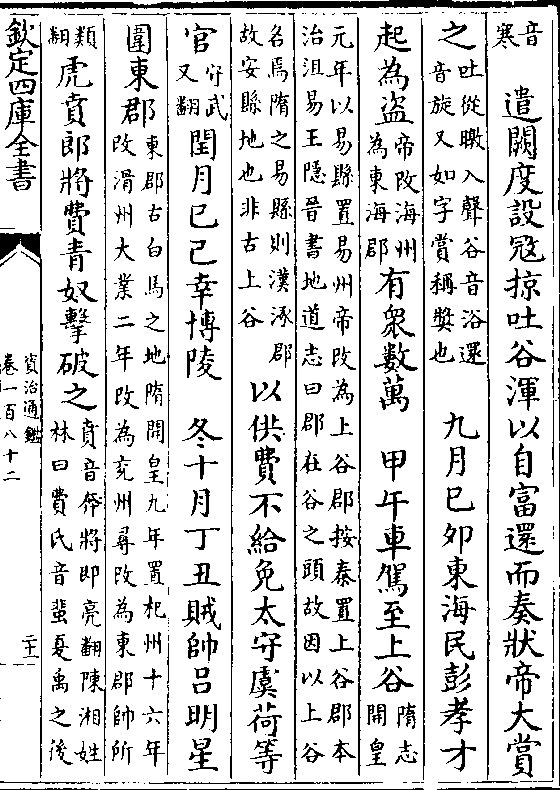 音
寒
遣闕度設冦掠吐谷渾以自富還而奏狀帝大賞
之吐從暾入聲谷音浴還
音旋又如字賞稱奬也
九月己夘東海民彭孝才
起為盗帝改海州
為東海郡有衆數萬
甲午車駕至上谷隋志
開皇
元年以易縣置易州帝改為上谷郡按秦置上谷郡本
治沮易王隱晉書地道志曰郡在谷之頭故因以上谷
名焉隋之易縣則漢涿郡
故安縣地也非古上谷
以供費不給免太守虞荷等
官守武
又翻
閏月己己幸博陵
冬十月丁丑賊帥吕明星
圍東郡東郡古白馬之地隋開皇九年置杞州十六年
改滑州大業二年改為兖州尋改為東郡帥所
類
翻虎賁郎將費青奴擊破之賁音奔將即亮翻陳湘姓
林曰費氏音蜚夏禹之後
欽定四庫全書
資治通鑑
卷一百八十二
二十一